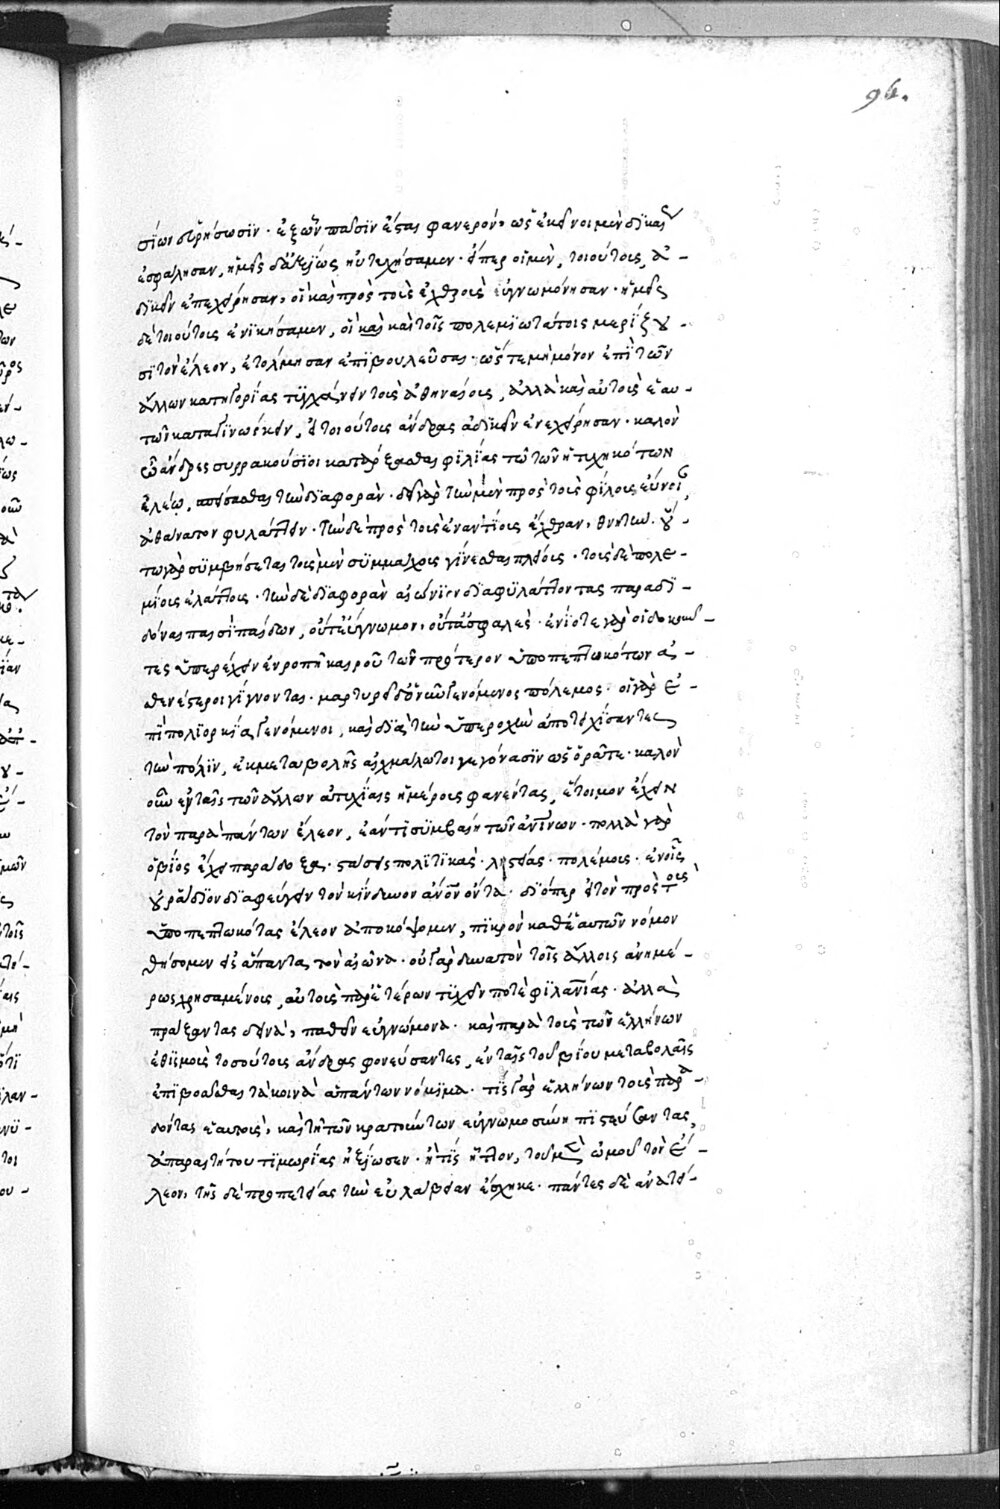 σίων στερήσωσϊν· ἐξ ὧν πᾶσϊν ἔσται φανερὸν, ὡς ἐκεῖνοι μὲν δϊκαί(ως)
ἐσφάλησαν, ἡμεῖς δ' ἀξίως ηὐτυχήσαμεν· εἴπερ οἱ μὲν, τοιούτους ἀ-
δϊκεῖν ἐπεχείρησαν, οἳ καὶ πρὸς τοὺς ἐχθροὺς εὐγνωμόνησαν· ἡμεῖς
δὲ τοιούτους ἐνϊκήσαμεν, οἳ καὶ καὶ τοῖς πολεμϊωτάτοις μερίζου-
σϊ τὸν ἔλεον, ἐτόλμησαν ἐπϊβουλεῦσαι· ὥς τε μὴ μόνον ἐπὶ τῶν
ἄλλων κατηγορίας τϋγχάνειν τοὺς ἀθηναίους, ἀλλὰ καὶ αὐτοὺς ἑαυ-
τῶν καταγϊνώσκειν, εἰ τοιούτους ἄνδρας ἀδϊκεῖν ἐνεχείρησαν· καλὸν
ὦ ἄνδρες συρρακούσϊοι κατάρξασθαι φϊλίας τῶ τῶν ἠτυχηκότων
ἐλέῳ, παύσασθαι τὴν δϊαφοράν· δεῖ γὰρ τὴν μὲν πρὸς τοὺς φίλους εὔνοι(αν)
ἀθάνατον φυλάττειν· τὴν δὲ πρὸς τοὺς ἐναντίους ἔχθραν, θνητήν. οὕ-
τω γὰρ συμβήσεται τοὺς μὲν συμμάχους γίνεσθαι πλείους· τοὺς δὲ πολε-
μίους ἐλάττους· τὴν δὲ δϊαφορὰν αἰώνϊον δϊαφϋλάττοντας παραδϊ-
δόναι παισὶ παίδων, οὔτ' εὔγνωμον, οὔτ' ἀσφαλές· ἐνίοτε γὰρ οἱ δοκοῦν-
τες ὑπερέχειν ἐν ῥοπῇ καιροῦ τῶν πρότερον ὑποπεπτωκότων ἀσ-
θενέστεροι γίγνονται· μαρτυρεῖ δὲ ὁ νῦν γενόμενος πόλεμος· οἱ γὰρ ἐ-
πὶ πολϊορκίᾳ γενόμενοι, καὶ δϊὰ τὴν ὑπεροχὴν ἀποτειχίσαντες
τὴν πόλϊν, ἐκ μεταβολῆς αἰχμάλωτοι γεγόνασϊν ὡς ὁρᾶτε· καλὸν
οὖν ἐν ταῖς τῶν ἄλλων ἀτυχίαις ἡμέρους φανέντας, ἕτοιμον ἔχειν
τὸν παρὰ πάντων ἔλεον, ἐάν τϊ συμβαίη τῶν ἀνθρωπίνων· πολλὰ γὰρ
ὁ βίος ἔχει παράδοξα· στάσεις πολϊτϊκάς· λῃστείας· πολέμους· ἐν οἷς
οὐ ῥάδϊον δϊαφεύγειν τὸν κίνδυνον ἄνθρωπον ὄντα· δϊόπερ εἰ τὸν πρὸς τοὺς
ὑποπεπτωκότας ἔλεον ἀποκόψομεν, πϊκρὸν καθ' ἑαυτῶν νόμον
θήσομεν εἰς ἅπαντα τὸν αἰῶνα· οὐ γὰρ δυνατὸν τοῖς ἄλλοις ἀνημέ-
ρως χρησαμένους, αὐτοὺς παρ' ἑτέρων τϋχεῖν ποτὲ φϊλανθρωπίας· ἀλλὰ
πράξαντας δεινὰ, παθεῖν εὐγνώμονα· καὶ παρὰ τοὺς τῶν ἑλλήνων
ἐθϊσμοὺς τοσούτους ἄνδρας φονεύσαντες, ἐν ταῖς τοῦ βίου μεταβολαῖς
ἐπϊβοᾶσθαι τὰ κοινὰ ἁπάντων νόμϊμα· τίς γὰρ ἑλλήνων τοὺς παρα-
δόντας ἑαυτοὺς, καὶ τῇ τῶν κρατούντων εὐγνωμοσύνη πϊστεύσαντας,
ἀπαραιτήτου τϊμωρίας ἠξίωσεν· ἢ τίς ἧττον, τοῦ μὲν ὠμοῦ τὸν ἔ-
λεον, τῆς δὲ προπετείας τὴν εὐλάβειαν ἔσχηκε· πάντες δὲ ἀνατεί-